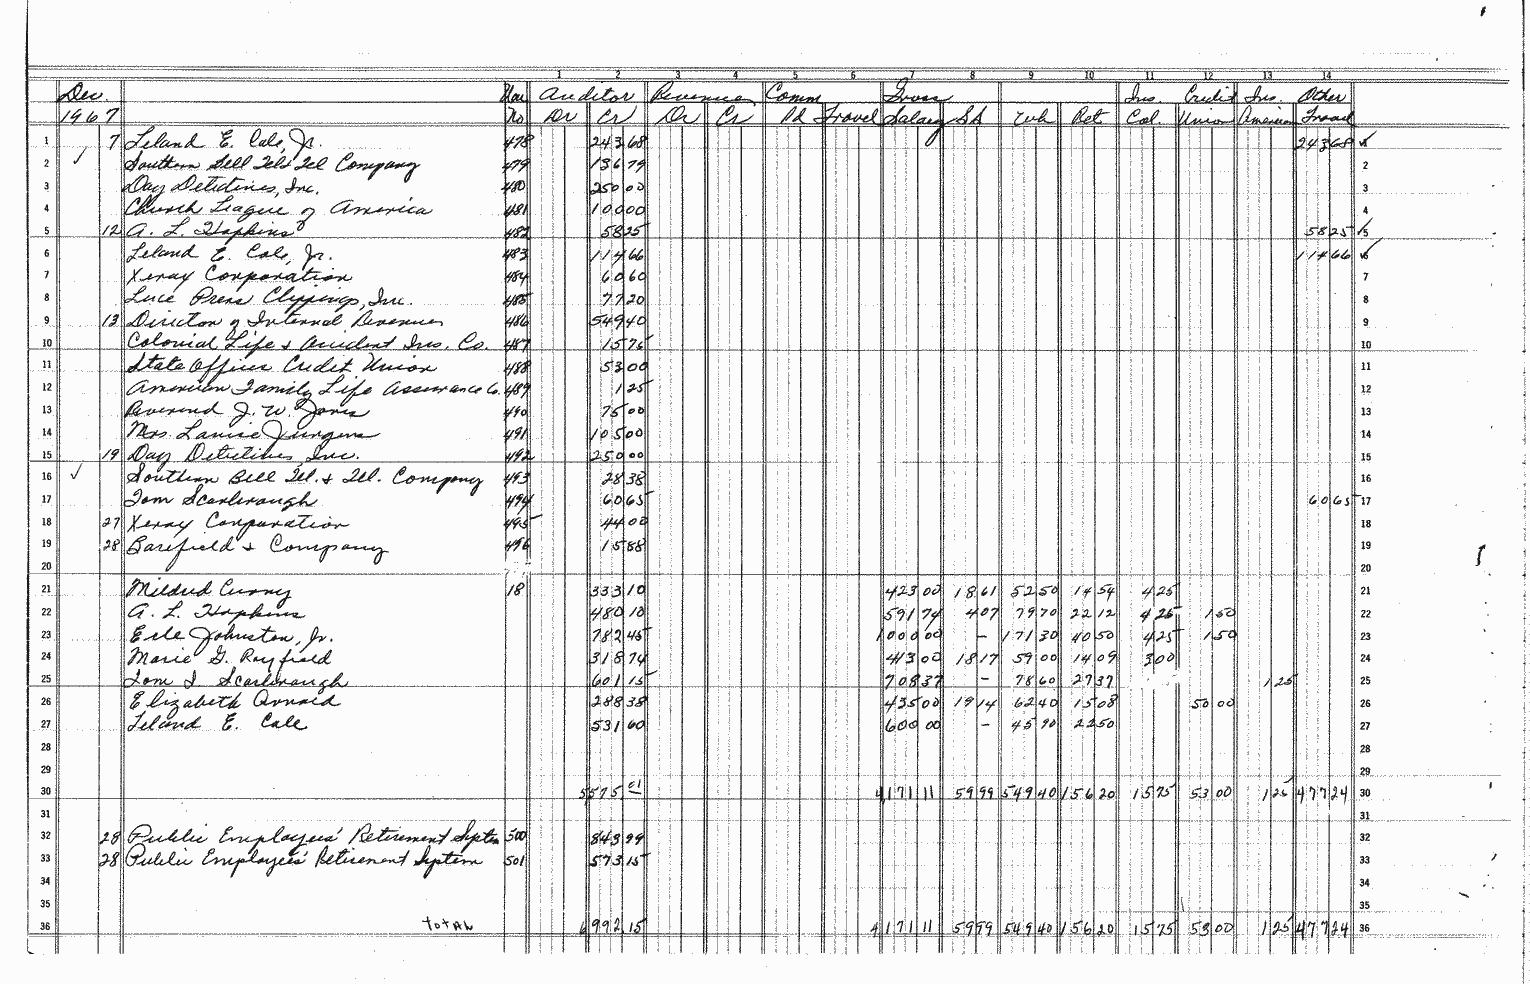 1 2 3 4 5 6 7 8 9 10 11 12 13 14
Dec. Auditor Revenue Comm Gross Ins. Credit Ins. Other
1967 No Dr Cr Dr Cr Pd Travel Salary SS Wh Ret Col. Union American Travel
1 7 Leland E. Cole, Jr. 478 243 68 243 68 1
2 ✓ Southern Bell Tel & Tel Company 479 136 79 2
3 Day Detectives, Inc. 480 250 00 3
4 Church League of America 481 100 00 4
5 12 A. L. Hopkins 482 58 25 58 25 ✓ 5
6 Leland E. Cole, Jr. 483 114 66 114 66 ✓ 6
7 Xerox Corporation 484 60 60 7
8 Luce Press Clippings, Inc. 485 77 20 8
9 13 Director of Internal Revenue 486 549 40 9
10 Colonial Life & Accident Ins. Co. 487 15 75 10
11 State Offices Credit Union 488 53 00 11
12 American Family Life Assurance Co. 489 1 25 12
13 Reverend J. W. Jones 490 75 00 13
14 Mrs. Louise Jurgens 491 105 00 14
15 19 Day Detectives, Inc. 492 250 00 15
16 ✓ Southern Bell Tel. & Tel. Company 493 28 38 16
17 Tom Scarbrough 494 60 65 60 65 17
18 27 Xerox Corporation 495 44 00 18
19 28 Barefield & Company 496 15 88 19
20 20
21 Mildred Curry 18 333 10 423 00 18 61 52 50 14 54 4 25 21
22 A. L. Hopkins 480 10 591 74 4 07 79 70 22 12 4 25 1 50 22
23 Erle Johnston, Jr. 782 45 1000 00 - 171 30 40 50 4 25 1 50 23
24 Marie G. Rayfield 318 74 413 00 18 17 59 00 14 09 3 00 24
25 Tom I. Scarbrough 601 15 708 37 - 78 60 27 37 1 25 25
26 Elizabeth Arnold 288 38 435 00 19 14 62 40 15 08 50 00 26
27 Leland E. Cole 531 60 600 00 - 45 90 22 50 27
28 28
29 29
30 5575 01 4171 11 59 99 549 40 156 20 15 75 53 00 1 25 477 24 30
31 31
32 28 Public Employees' Retirement System 500 843 99 32
33 28 Public Employees' Retirement System 501 573 15 33
34 34
35 35
36 TOTAL 6992 15 4171 11 59 99 549 40 156 20 15 75 53 00 1 25 477 24 36